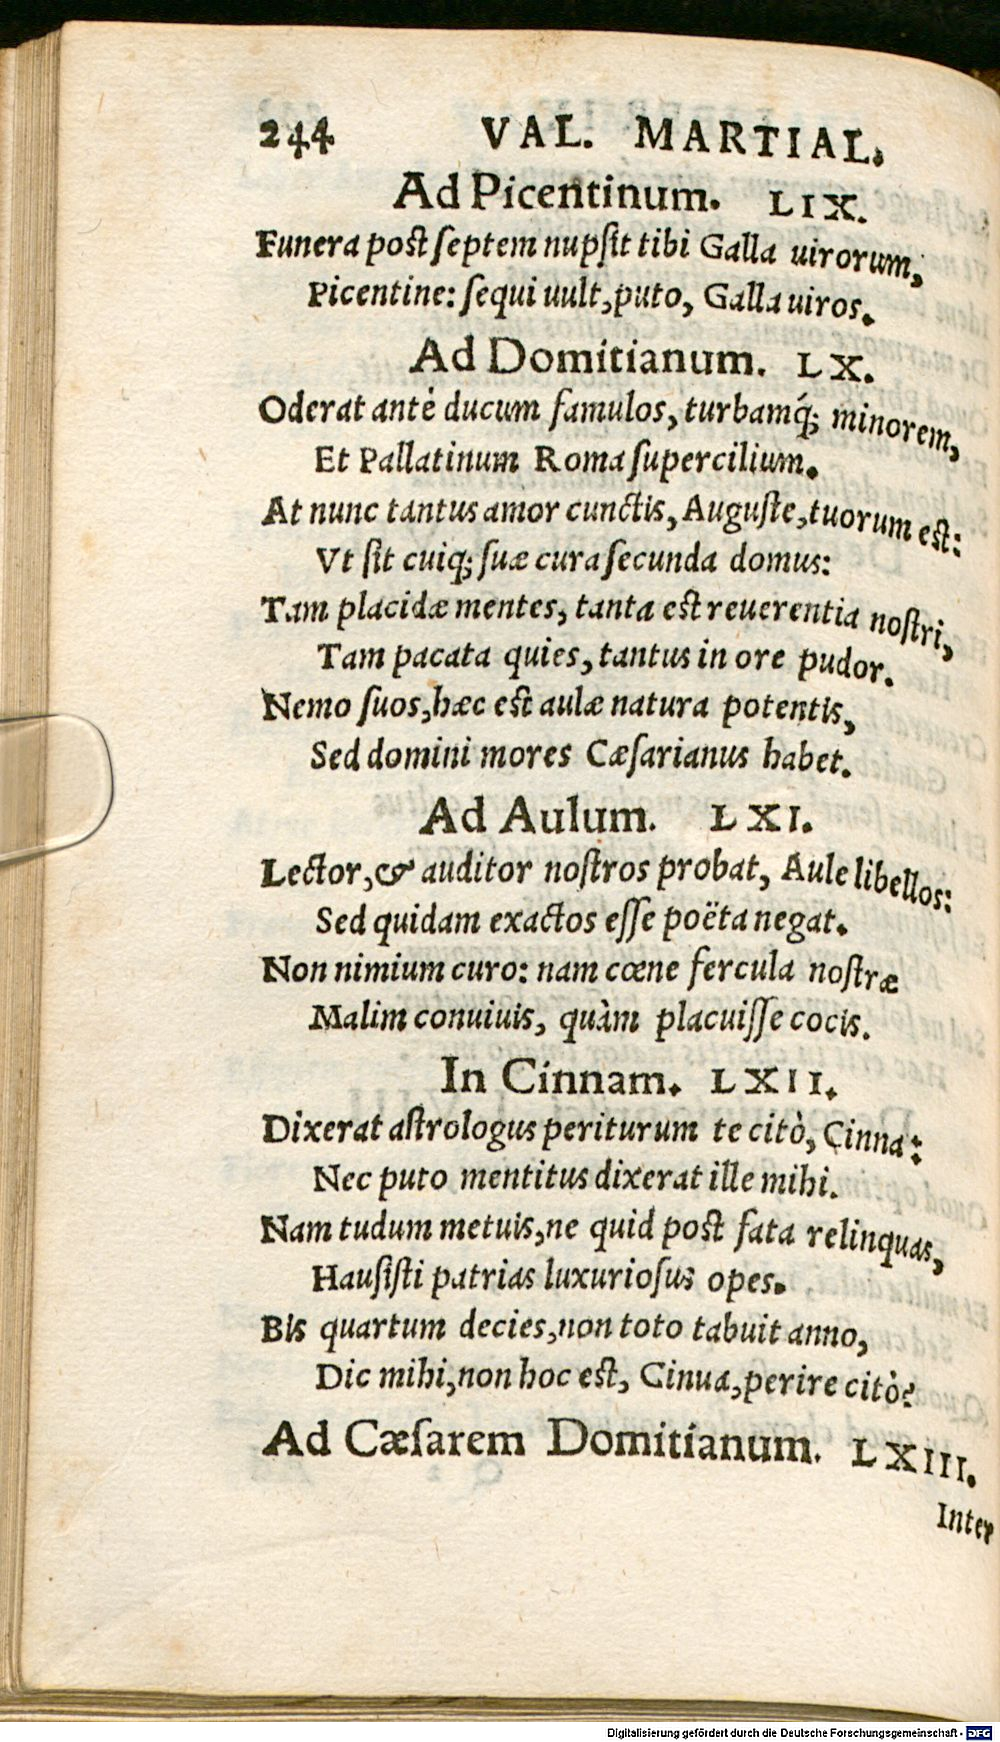 244 VAL. MARTIAL.
Ad Picentinum. LIX.
Funera post ſeptem nupſit tibi Galla uirorum,
Picentine: ſequi uult, puto, Galla uiros.
Ad Domitianum. LX.
Oderat antè ducum famulos, turbamq́; minorem,
Et Pallatinum Roma ſupercilium.
At nunc tantus amor cunctis, Auguſte, tuorum est:
Vt ſit cuiq; ſuæ cura ſecunda domus:
Tam placidæ mentes, tanta est reuerentia noſtri,
Tam pacata quies, tantus in ore pudor.
Nemo ſuos, hæc est aulæ natura potentis,
Sed domini mores Cæſarianus habet.
Ad Aulum. LXI.
Lector, & auditor noſtros probat, Aule libellos:
Sed quidam exactos eſſe poëta negat.
Non nimium curo: nam cœne fercula noſtræ
Malim conuiuis, quàm placuiſſe cocis.
In Cinnam. LXII.
Dixerat aſtrologus periturum te citò, Cinna:
Nec puto mentitus dixerat ille mihi.
Nam tudum metuis, ne quid post fata relinquas,
Hauſiſti patrias luxurioſus opes.
Bis quartum decies, non toto tabuit anno,
Dic mihi, non hoc est, Cinua, perire citò?
Ad Cæſarem Domitianum. LXIII.
Inter
Digitalisierung gefördert durch die Deutsche Forschungsgemeinschaft - DFG